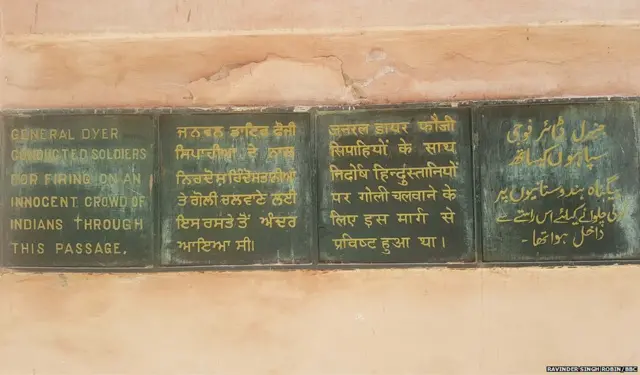 GENERAL DYER
CONDUCTED SOLDIERS
FOR FIRING ON AN
INNOCENT CROWD OF
INDIANS THROUGH
THIS PASSAGE.
ਜਨਰਲ ਡਾਇਰ ਫੌਜੀ
ਸਿਪਾਹੀਆਂ ਦੇ ਨਾਲ
ਨਿਰਦੋਸ਼ ਹਿੰਦੋਸਤਾਨੀਆਂ
ਤੇ ਗੋਲੀ ਚਲਾਵਣੇ ਲਈ
ਇਸ ਰਸਤੇ ਤੋਂ ਅੰਦਰ
ਆਇਆ ਸੀ।
जनरल डायर फौजी
सिपाहियों के साथ
निर्दोष हिन्दुस्तानियों
पर गोली चलवाने के
लिए इस मार्ग से
प्रविष्ट हुआ था।
جنرل ڈائر فوجی
سپاہیوں کیساتھ
بیگناہ ہندوستانیوں پر
گولی چلوانے کیلئے اس راستے سے
داخل ہوا تھا۔
RAVINDER SINGH ROBIN/BBC